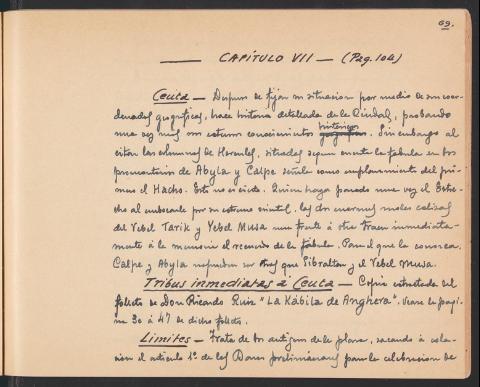 69.
CAPÍTULO VII — (Pag. 104)
Ceuta — Despues de fijar su situacion por medio de sus coor-
denadas geográficas, hace historia detallada de la Ciudad, probando
una vez mas sus extensos conocimientos históricos. Sin embargo al
citar las columnas de Hercules, situadas segun cuenta la fabula en los
promontorios de Abyla y Calpe señala como emplazamiento del pri-
mero el Hacho. Esto no es cierto. Quien haya pasado una vez el Estre-
cho al embocarle por su extremo oriental, las dos enormes moles calizas
del Yebel Tarik y Yebel Musa una frente á otra traen inmediata-
mente á la memoria el recuerdo de la fábula. Para el que la conozca
Calpe y Abyla no pueden ser mas que Gibraltar y el Yebel Musa.
Tribus inmediatas á Ceuta — Copia extractada del
folleto de Don Ricardo Ruiz "La Kábila de Anghera". Vease la pagi-
na 30 á 47 de dicho folleto.
Limites — Trata de los antiguos de la plaza, sacando á cola-
cion el articulo 1º de las Bases preliminares para la celebracion de